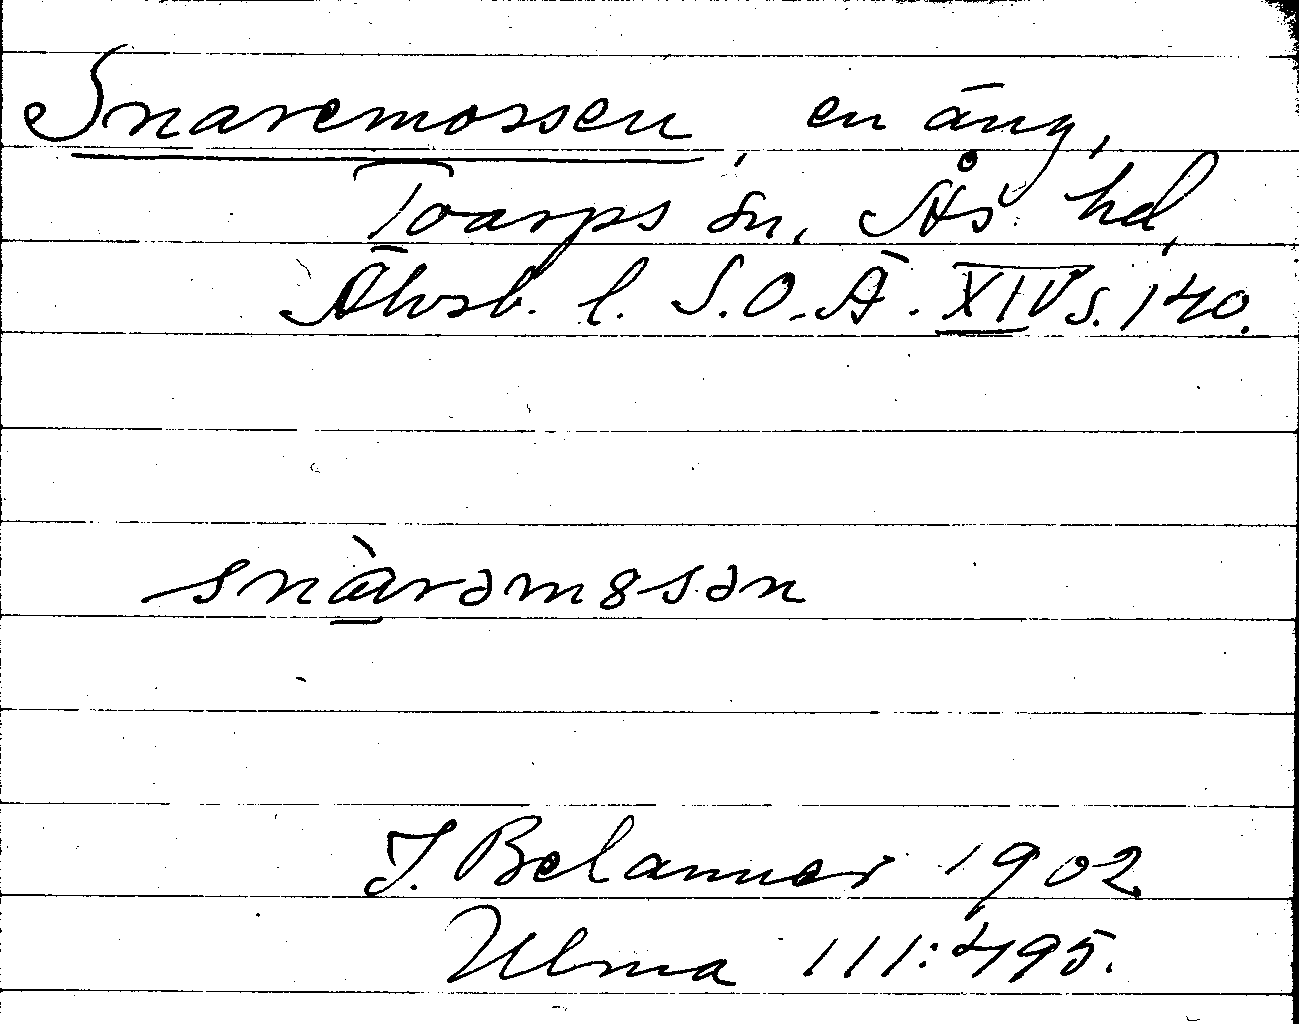 Snaremossen, en äng,
Toarps sn, Ås hd,
Älvsb. l. S.O.Ä. XIV s. 140.
snàrəm8sən
J. Belanner 1902
Ulma 111:495.